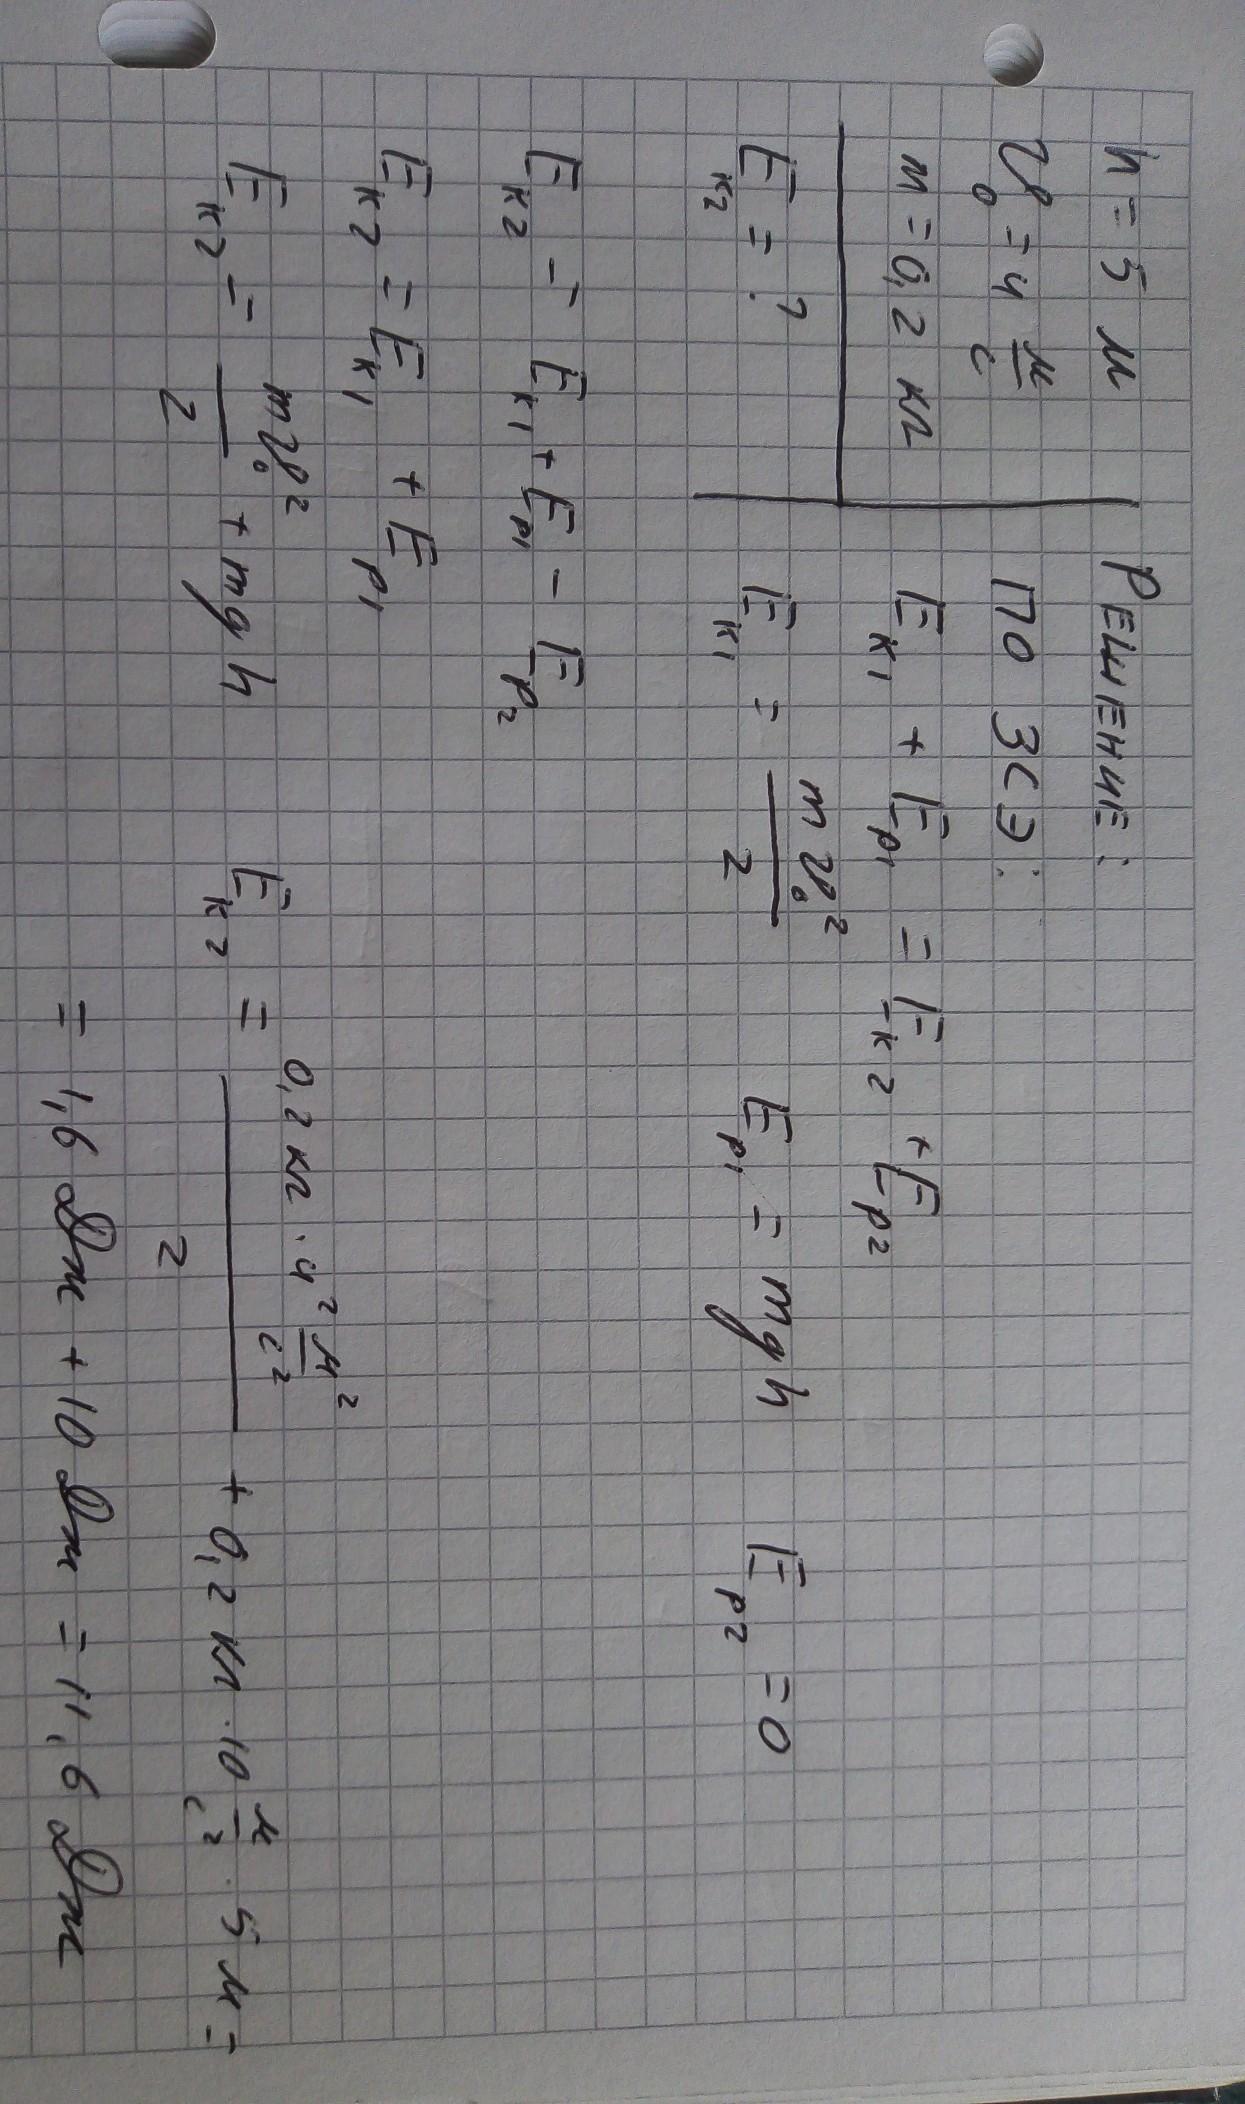 h = 5 м
v₀ = 4 м/с
m = 0,2 кг
Eк₂ = ?
РЕШЕНИЕ:
ПО ЗСЭ:
Eк₁ + Eр₁ = Eк₂ + Eр₂
Eк₁ = mv₀²/2 Eр₁ = mgh Eр₂ = 0
Eк₂ = Eк₁ + Eр₁ - Eр₂
Eк₂ = Eк₁ + Eр₁
Eк₂ = mv₀²/2 + mgh
Eк₂ = 0,2 кг · 4² м²/с² / 2 + 0,2 кг · 10 м/с² · 5 м =
= 1,6 Дж + 10 Дж = 11,6 Дж